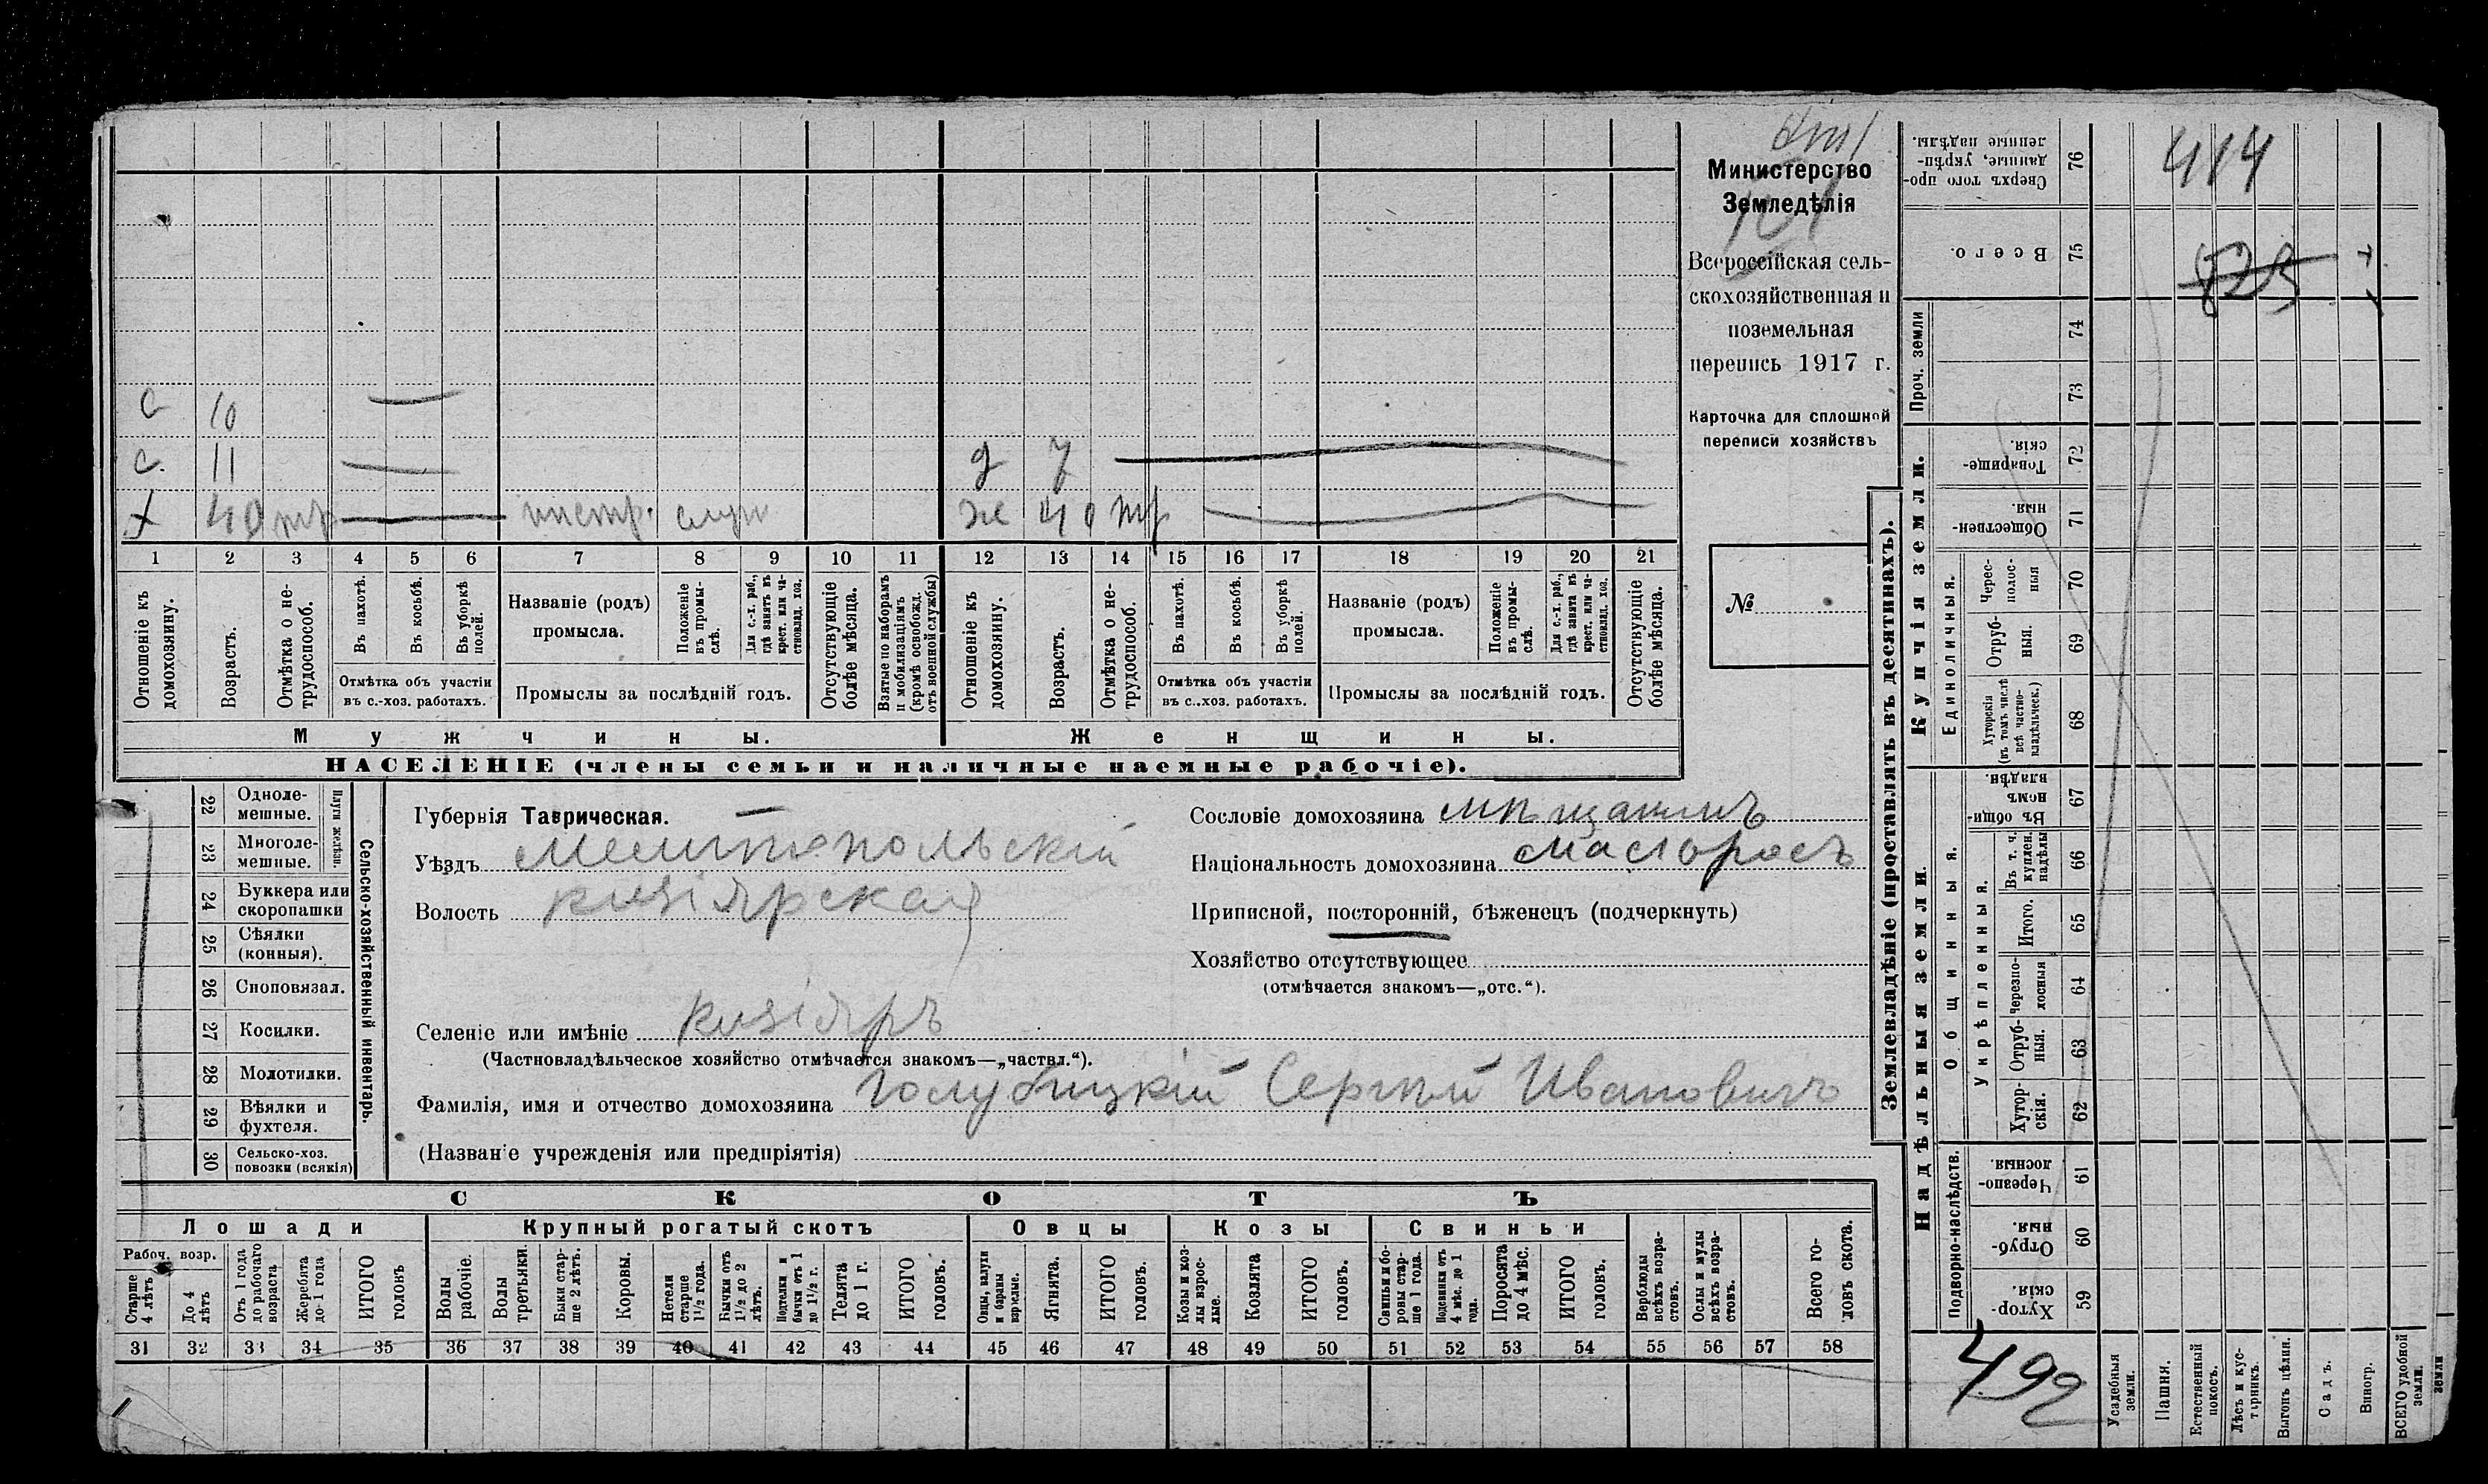 414
Министерство
Земледѣлія
Всероссійская сель-
скохозяйственная и
поземельная
перепись 1917 г.
Карточка для сплошной
переписи хозяйствъ
№
с 10
с. 11
д 7
х 40 тр
ж 40 тр
1 2 3 4 5 6 7 8 9 10 11 12 13 14 15 16 17 18 19 20 21
Отношеніе къ домохозяину.
Возрастъ.
Отмѣтка о не-трудоспособ.
Въ пахотѣ.
Въ косьбѣ.
Въ уборкѣ полей.
Отмѣтка объ участіи
въ с.-хоз. работахъ.
Названіе (родъ)
промысла.
Положеніе въ промы-слѣ.
Для с.-х. раб., гдѣ занятъ въ крест. или ча-стновлад. хоз.
Промыслы за послѣдній годъ.
Отсутствующіе болѣе мѣсяца.
Взятые по наборамъ и мобилизаціямъ (кромѣ освобожд. отъ военной службы)
Отношеніе къ домохозяину.
Возрастъ.
Отмѣтка о не-трудоспособ.
Въ пахотѣ.
Въ косьбѣ.
Въ уборкѣ полей.
Отмѣтка объ участіи
въ с..хоз. работахъ.
Названіе (родъ)
промысла.
Положеніе въ промы-слѣ.
Для с.-х. раб., гдѣ занята въ крест. или ча-стновлад. хоз.
Промыслы за послѣдній годъ.
Отсутствующіе болѣе мѣсяца.
Мужчины.
Женщины.
НАСЕЛЕНІЕ (члены семьи и наличные наемные рабочіе).
Сельско-хозяйственный инвентарь.
Плуги желѣзн.
22 Одноле-мешные.
23 Многоле-мешные.
24 Буккера или скоропашки
25 Сѣялки (конныя).
26 Сноповязал.
27 Косилки.
28 Молотилки.
29 Вѣялки и фухтеля.
30 Сельско-хоз. повозки (всякія)
Губернія Таврическая.
Уѣздъ Мелитопольскій
Волость кизіярская
Селеніе или имѣніе кизіяръ
(Частновладѣльческое хозяйство отмѣчается знакомъ—„частвл.“).
Фамилія, имя и отчество домохозяина Голубицкій Сергѣй Ивановичъ
(Названіе учрежденія или предпріятія)
Сословіе домохозяина мѣщанинъ
Національность домохозяина малоросъ
Приписной, посторонній, бѣженецъ (подчеркнуть)
Хозяйство отсутствующее
(отмѣчается знакомъ—„отс.“).
СКОТЪ
Лошади
Крупный рогатый скотъ
Овцы
Козы
Свиньи
Рабоч. возр.
Старше 4 лѣтъ
До 4 лѣтъ
Отъ 1 года до рабочаго возраста
Жеребята до 1 года
ИТОГО головъ
Волы рабочіе.
Волы третьяки.
Быки стар-ше 2 лѣтъ.
Коровы.
Нетели старше 1½ года.
Бычки отъ 1½ до 2 лѣтъ.
Подтелки и бычки отъ 1 до 1½ г.
Телята до 1 г.
ИТОГО головъ.
Овцы, валухи и бараны взрослые.
Ягнята.
ИТОГО головъ.
Козы и коз-лы взрос-лые.
Козлята
ИТОГО головъ.
Свиньи и бо-ровы стар-ше 1 года.
Подсвинки отъ 4 мѣс. до 1 года.
Поросята до 4 мѣс.
ИТОГО головъ.
Верблюды всѣхъ возра-стовъ.
Ослы и мулы всѣхъ возра-стовъ.
Всего го-ловъ скота.
31 32 33 34 35 36 37 38 39 40 41 42 43 44 45 46 47 48 49 50 51 52 53 54 55 56 57 58
Землевладѣніе (проставлять въ десятинахъ).
Купчія земли.
Надѣльныя земли.
Сверхъ того про-данные, укрѣп-ленные надѣлы. 76
Всего. 75
Проч. земли
74
73
Товарище-скія. 72
Обществен-ныя. 71
Единоличныя.
Черес-полос-ныя 70
Отруб-ныя. 69
Хуторскія (въ томъ числѣ всѣ частно-владѣльческ.) 68
Общинныя.
Въ общи-номъ владѣн. 67
Укрѣпленныя.
Въ т. ч. куплен. надѣлы 66
Итого. 65
Черезпо-лосныя 64
Отруб-ныя. 63
Хутор-скія. 62
Подворно-наслѣдств.
Черезпо-лосныя. 61
Отруб-ныя. 60
Хутор-скія. 59
492
Усадебныя земли.
Пашня.
Естественный покосъ.
Лѣсъ и кус-тарникъ.
Выгонъ цѣлин.
Садъ.
Виногр.
ВСЕГО удобной земли.
земли